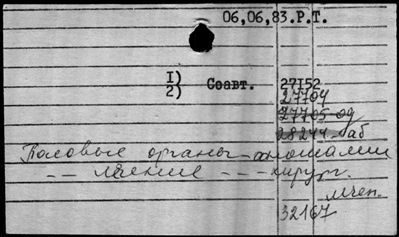 06,06,83.Р.Т.
I)
2) Соавт. 27152
27704
27705-од
28244-аб
Половые органы-аномалии
-- лечение --- хирург.
32167